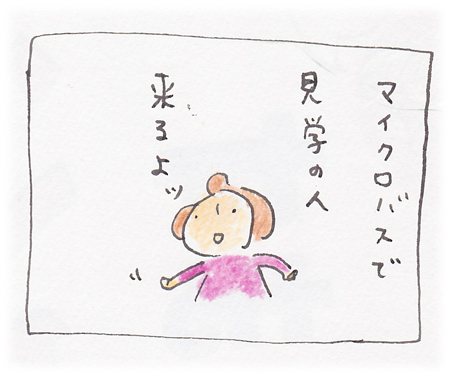 マイクロバスで
見学の人
来るよッ